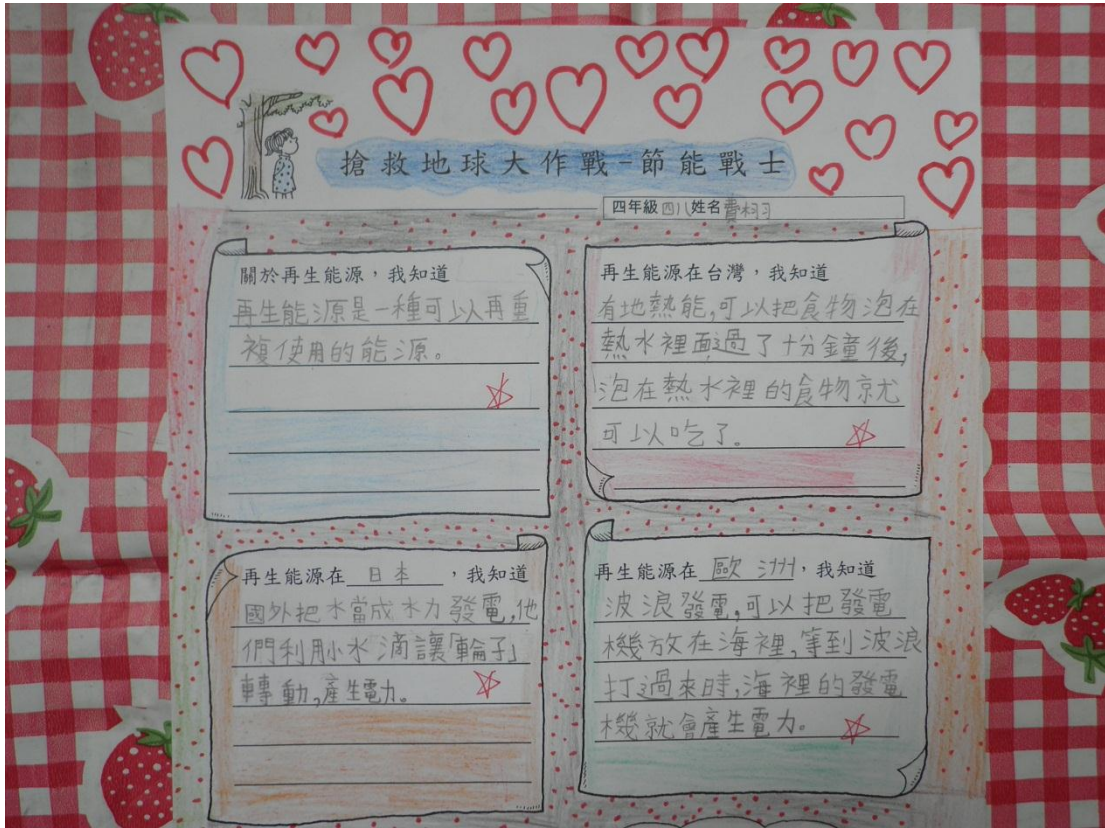 搶救地球大作戰-節能戰士
四年級四八姓名費栩羽
關於再生能源，我知道
再生能源是一種可以再重
複使用的能源。
再生能源在台灣，我知道
有地熱能,可以把食物泡在
熱水裡面過了十分鐘後,
泡在熱水裡的食物就
可以吃了。
再生能源在 日本 ，我知道
國外把水當成水力發電,他
們利用小水滴讓「輪子」
轉動,產生電力。
再生能源在 歐洲，我知道
波浪發電,可以把發電
機放在海裡,等到波浪
打過來時,海裡的發電
機就會產生電力。